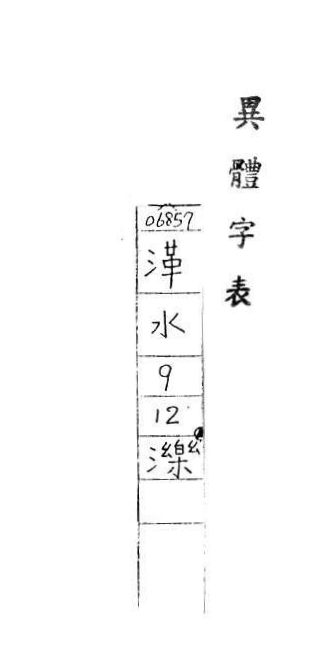 異體字表
06857
水
9
12
濼